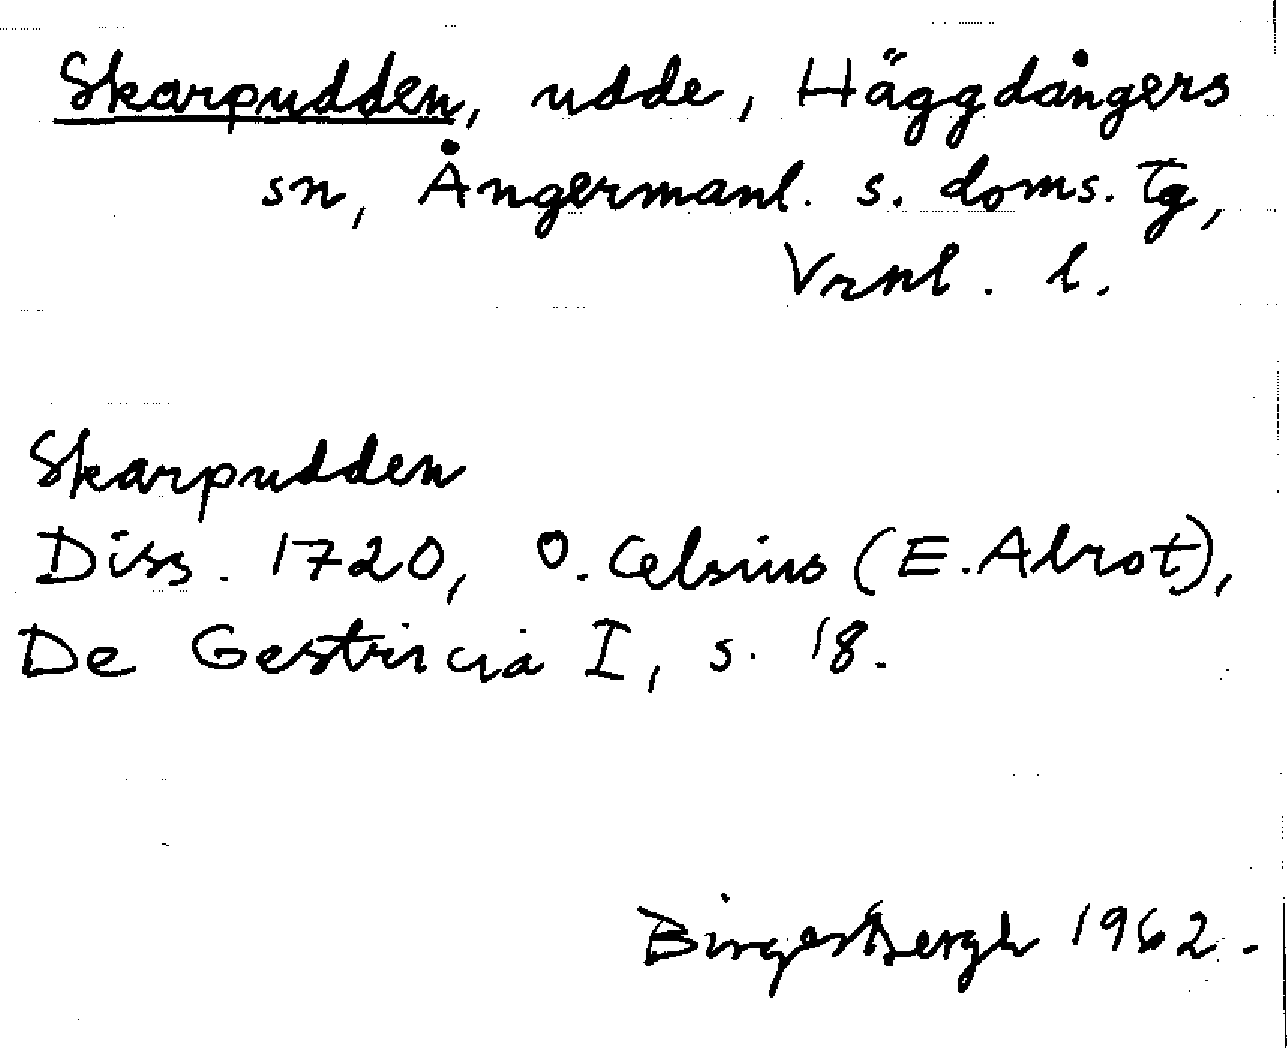 Skarpudden, udde, Häggdångers
sn, Ångermanl. s. doms. tg,
Vrnl. l.
Skarpudden
Diss. 1720, O. Celsius (E. Alrot),
De Gestricia I, s. 18.
1962.